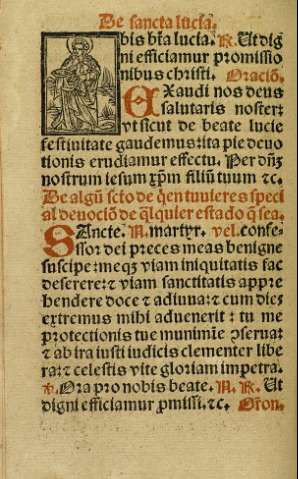 De sancta lucia.
bis bt̃a lucia. R. Ut dig
ni efficiamur promissio
nibus christi. Oració̃.
EXaudi nos deus
salutaris noster:
vt sicut de beate lucie
festiuitate gaudemus: ita pie deuo
tionis erudiamur effectu. Per dñ3
nostrum iesum xp̃m filiũ tuum ⁊c.
De algũ scto de q̃en tuuieres speci
al deuociõ de q̃lquier estado q̃ sea.
SAncte. N. martyr. vel. confe-
ssor dei preces meas benigne
suscipe: meq3 viam iniquitatis fac
deserere: ⁊ viam sanctitatis appre
hendere doce ⁊ adiuua: ⁊ cum dies
extremus mihi aduenerit: tu me
protectionis tue munimine ꝯserua:
⁊ ab ira iusti iudicis clementer libe
ra: ⁊ celestis vite gloriam impetra.
℣. Ora pro nobis beate. N. R. Ut
digni efficiamur ꝓmissi. ⁊c. Or̃on.